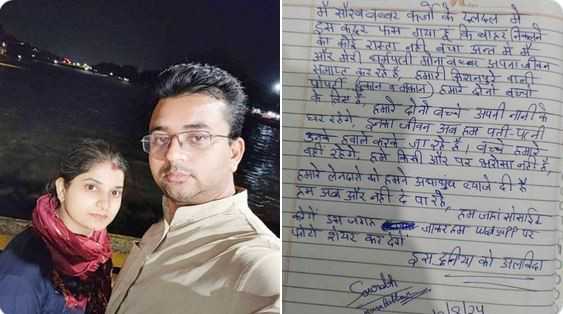 मैं सौरव बब्बर कर्जो के दलदल में
इस कदर फंस गया है कि बाहर निकलने
का कोई रास्ता नही बचा अन्त मे मैं
और मेरी धर्मपत्नी मोना बब्बर अपना जीवन
समाप्त कर रहे है, हमारी किशनपुरा वाली
प्रोपर्टी (दुकान व मकान) हमारे दोनो बच्चो
के लिए है, हमारे दोनो बच्चे अपनी नानी के
घर रहेंगे, इनका जीवन अब हम पति-पत्नी
उनके हवाले करके जा रहे है। बच्चे हमारे
वही रहेंगे, हमे किसी और पर भरोसा नही है,
हमारे लेनदारो को हमने अंधाधुंध ब्याजे दी है
हम अब और नही दे पा रहे,
हम जहां सोसाईड
करेंगे उस जगह जाकर हम whatsapp पर
फोटो शेयर कर देंगे।
इस दुनिया को अलविदा
Saurabh
10/8/24